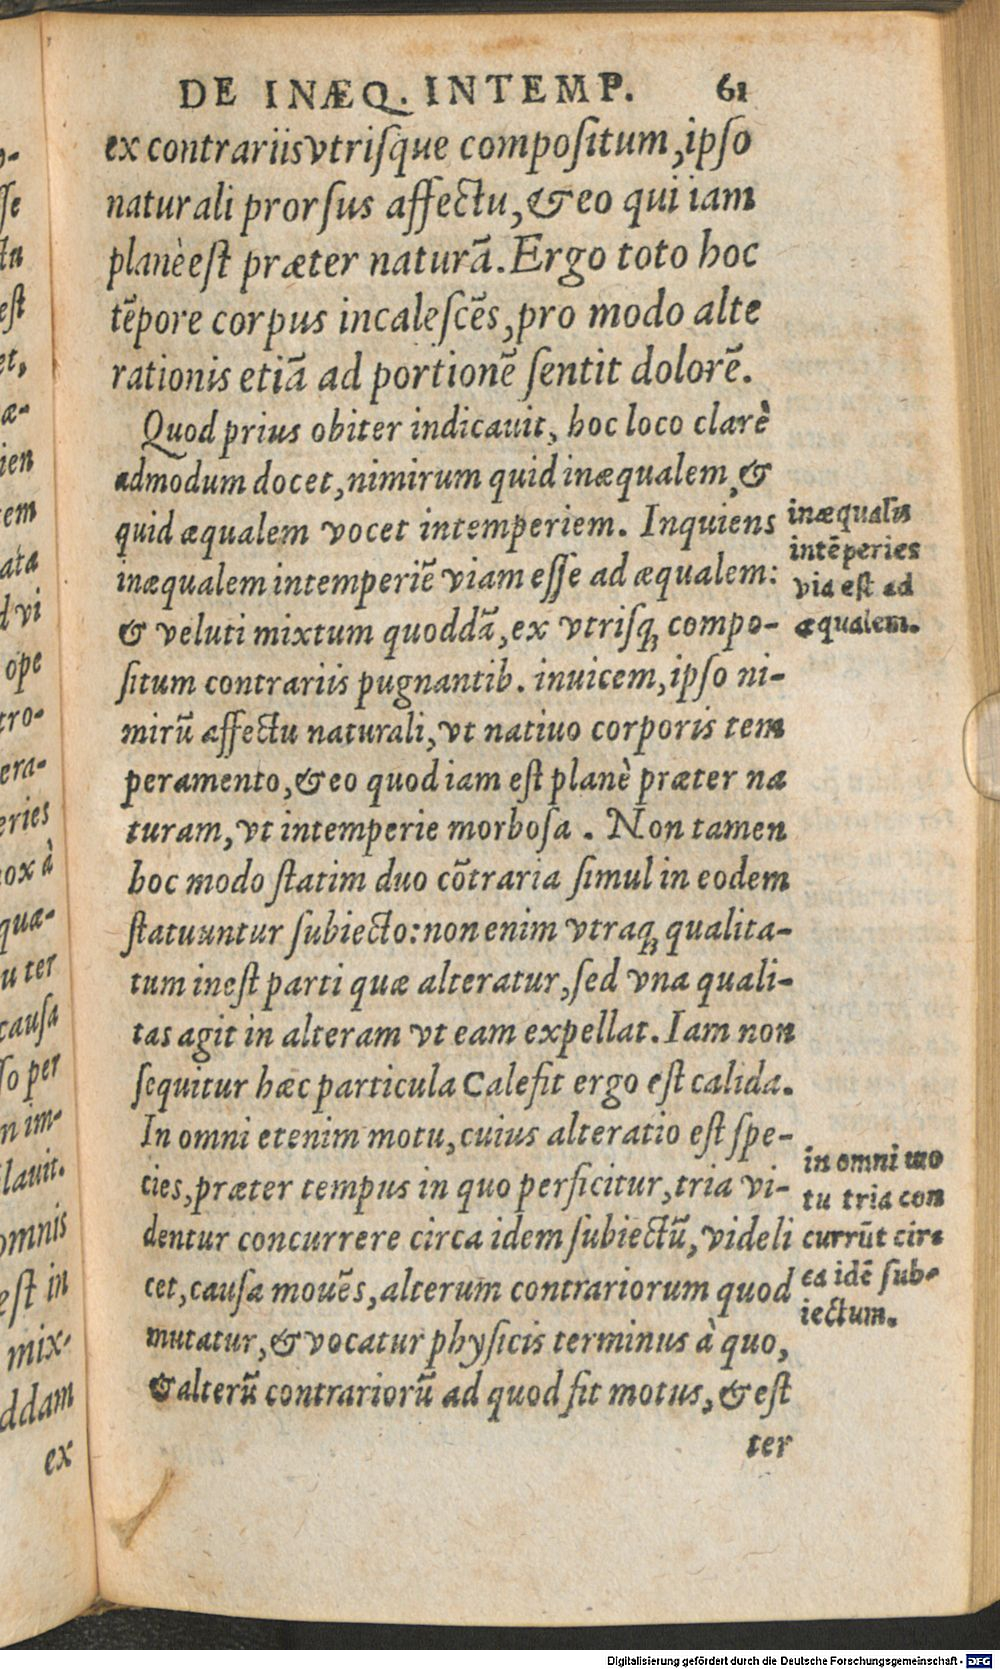 DE INÆQ. INTEMP. 61
ex contrariis vtriſque compoſitum, ipſo
naturali prorſus affectu, & eo qui iam
planè eſt præter naturā. Ergo toto hoc
tēpore corpus incaleſcēs, pro modo alte
rationis etiā ad portionē ſentit dolorē.
Quod prius obiter indicauit, hoc loco clarè
admodum docet, nimirum quid inæqualem, &
quid æqualem vocet intemperiem. Inquiens
inæqualem intemperiē viam eſſe ad æqualem:
& veluti mixtum quoddā, ex vtriſq; compo-
ſitum contrariis pugnantib. inuicem, ipſo ni-
mirū affectu naturali, vt natiuo corporis tem
peramento, & eo quod iam eſt planè præter na
turam, vt intemperie morboſa. Non tamen
hoc modo ſtatim duo cōtraria ſimul in eodem
ſtatuuntur ſubiecto: non enim vtraq; qualita-
tum ineſt parti quæ alteratur, ſed vna quali-
tas agit in alteram vt eam expellat. Iam non
ſequitur hæc particula Calefit ergo eſt calida.
In omni etenim motu, cuius alteratio eſt ſpe-
cies, præter tempus in quo perficitur, tria vi-
dentur concurrere circa idem ſubiectū, videli
cet, cauſa mouēs, alterum contrariorum quod
mutatur, & vocatur phyſicis terminus à quo,
& alterū contrariorū ad quod fit motus, & eſt
ter
inæqualis
intēperies
via eſt ad
æqualem.
in omni mo
tu tria con
currūt cir-
ca idē ſub-
iectum.
o-
ſſe
tu
eſt
et,
æ-
ien
tem
ata
d vi
ope
tro-
era-
eries
ox à
quæ-
u ter
cauſa
ſo per
n im-
lauit.
omnis
eſt in
mix-
ddam
ex
Digitalisierung gefördert durch die Deutsche Forschungsgemeinschaft - DFG